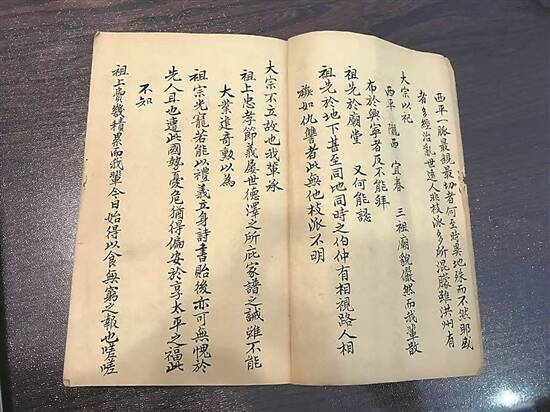 西平一脈最親最切者何至時異地殊而不然耶或
者多經治亂世遠人非枝派多所混藤雖洪州有
大宗以祀
西平 隴西 宜春 三祖廟貌儼然而我輩散
布於興寧者反不能拜
祖先於廟堂 又何能認
祖先於地下甚至同地同時之伯仲有相視路人相
族如仇讐者此無他枝派不明
大宗不立故也我輩承
祖上忠孝節義屢世德澤之所庇家譜之誠雖不能
大業進奇勳以為
祖宗光寵若能以禮義立身詩書貽後亦可無愧於
先人且也遭此國勢憂危猶得偏安於享太平之福此
不知
祖上費幾積累而我輩今日始得以食無窮之報也嗟嗟